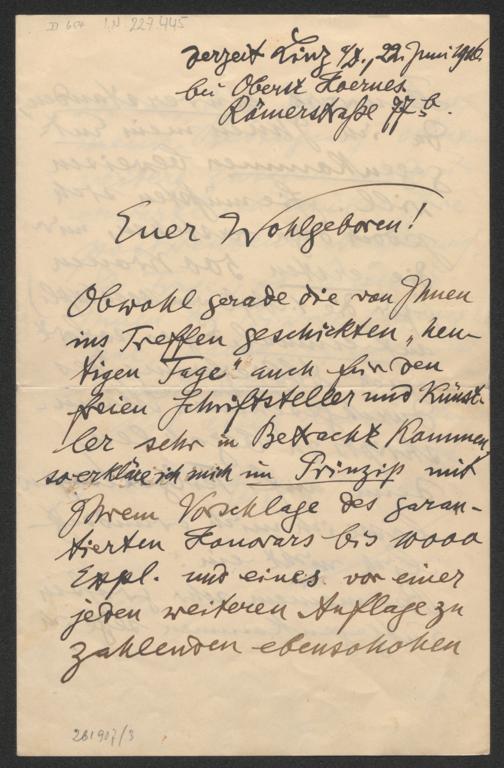 I.N. 227.445
derzeit Linz a/D., 22. Juni 1916
bei Oberst Hoernes
Römerstraße 77b.
Euer Wohlgeboren!
Obwohl gerade die von Ihnen
ins Treffen geschickten „heu-
tigen Tage“ auch für den
freien Schriftsteller und Künst-
ler sehr in Betracht kommen,
so erkläre ich mich im Prinzip mit
Ihrem Vorschlage des garan-
tierten Honorars bis 10000
Expl. und eines vor einer
jeden weiteren Auflage zu
zahlenden ebensohohen
281907/3